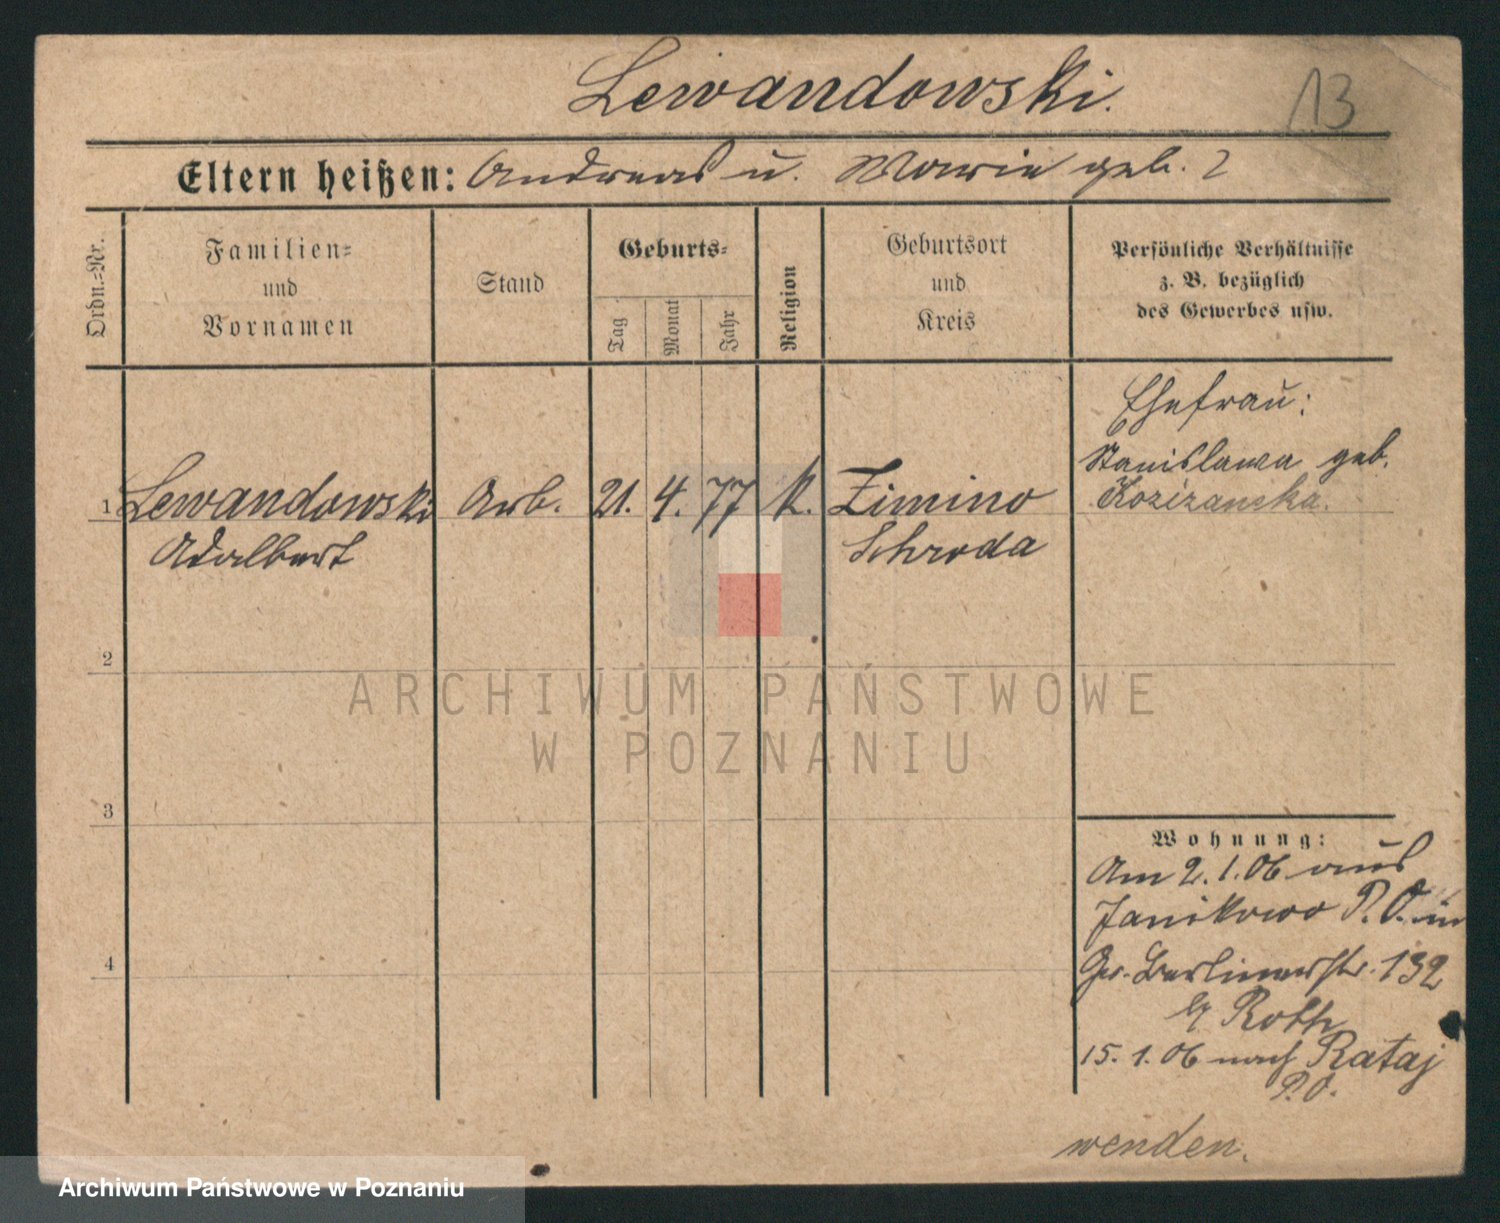 Lewandowski.
13
Eltern heißen: Andreas u. Marie geb. ?
Ordn.-Nr.
Familien-
und
Vornamen
Stand
Geburts-
Tag
Monat
Jahr
Religion
Geburtsort
und
Kreis
Persönliche Verhältnisse
z. B. bezüglich
des Gewerbes usw.
Ehefrau:
Stanislawa geb.
1 Lewandowski Arb. 21. 4. 77 k. Zimino
Adalbert Schroda
2
ARCHIWUM PAŃSTWOWE
W POZNANIU
3
4
Wohnung:
Am 2.1.06 aus
Janikowo P.O. in
Gr. Berlinerstr. 132
b/ Roth
15.1.06 nach Rataj
P.O.
wenden.
Archiwum Państwowe w Poznaniu